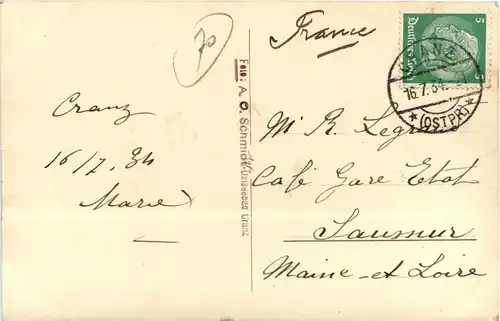 70
France
5
5
CRANZ
16.7.34
*(OSTPR)*
Foto: A. O. Schmidt, Ostseebad Cranz
Cranz
16/7. 34
Marie
M. R.
Café Gare Etat
Saumur
Maine-et Loire